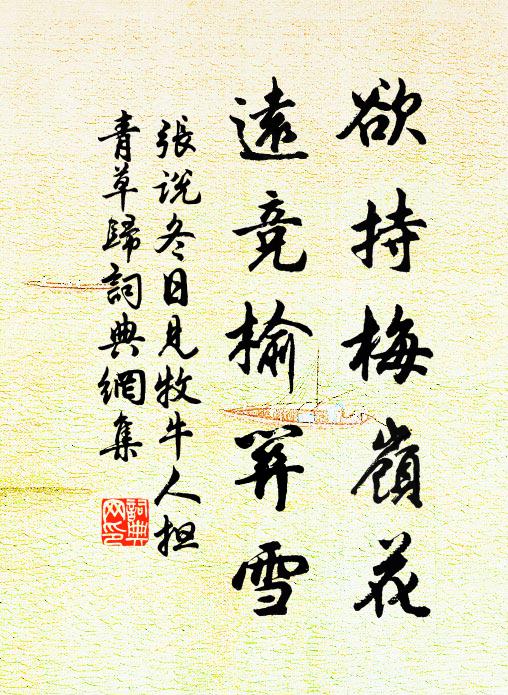 欲持梅嶺花
遠競榆關雪
張說冬日見牧牛人担
青草歸詞典網集
詞典網印